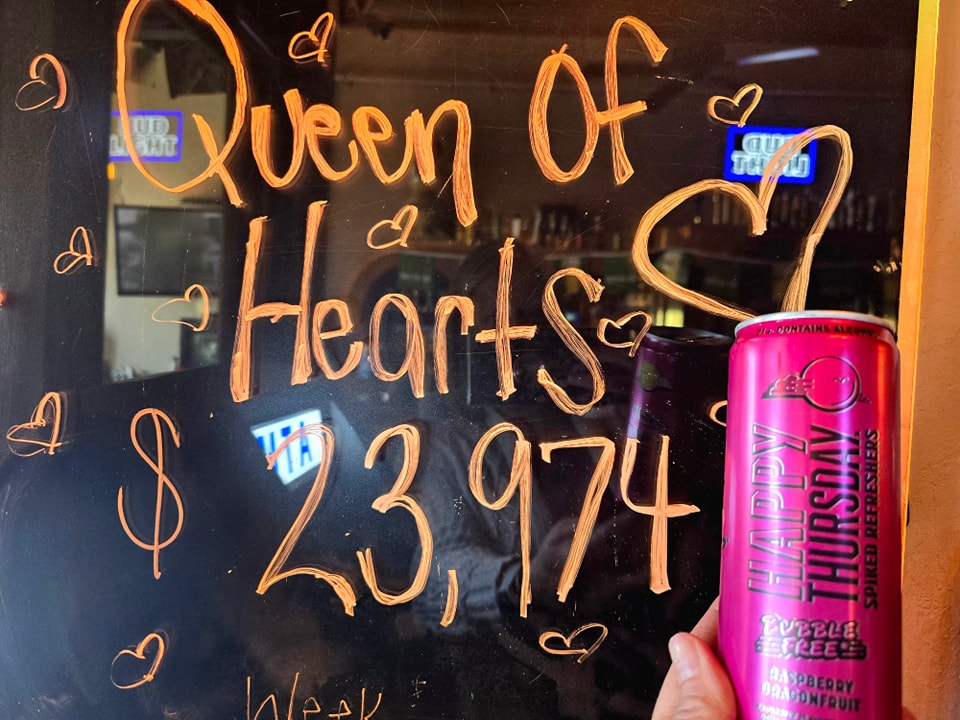 Queen Of
Hearts
$23,974
Week
BUD
LIGHT
BUD
LIGHT
CONTAINS ALCOHOL
HAPPY
THURSDAY
SPIKED REFRESHERS
BUBBLE
FREE!
RASPBERRY
DRAGONFRUIT